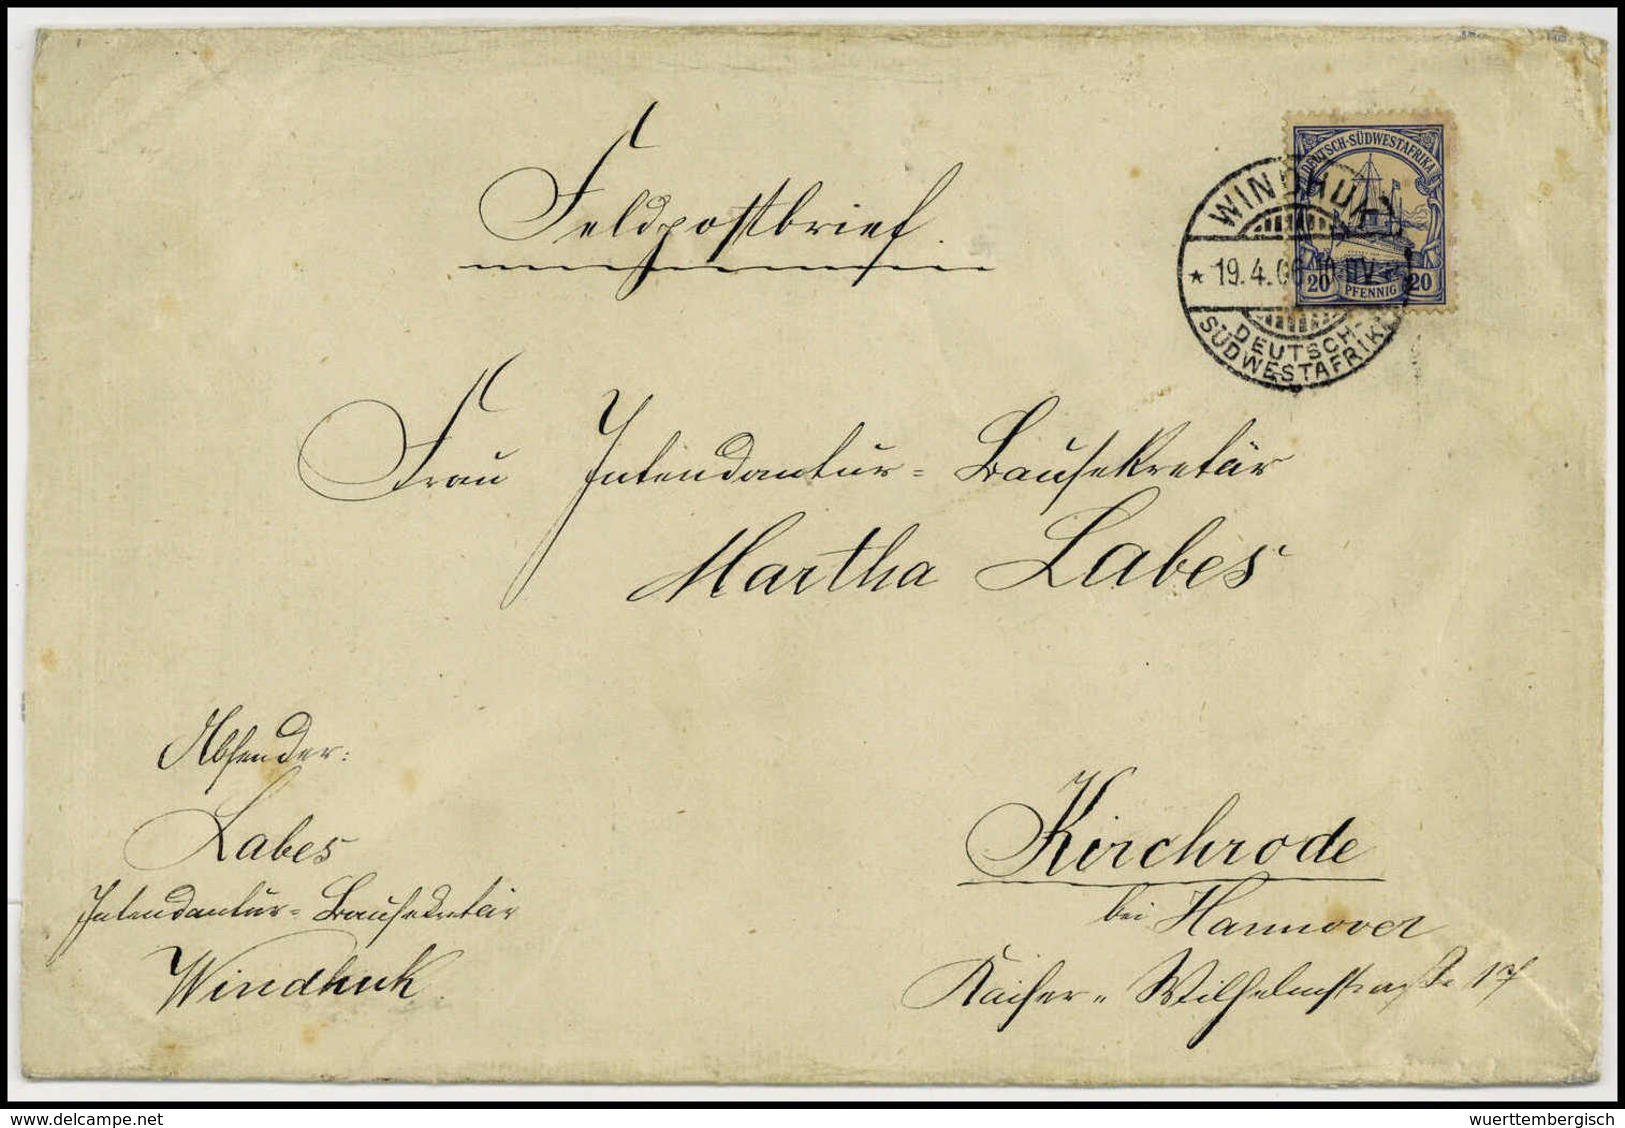 Feldpostbrief.
DEUTSCH-SÜDWESTAFRIKA
20 PFENNIG 20
WINDHUK
* 19.4.06. 10-11 V. *
DEUTSCH-
SÜDWESTAFRIKA
Frau Intendantur=Bausekretär
Martha Labes
Absender:
Labes
Intendantur=Bausekretär
Windhuk.
Kirchrode
bei Hannover
Kaiser=Wilhelmstraße
delcampe.net
wuerttembergisch